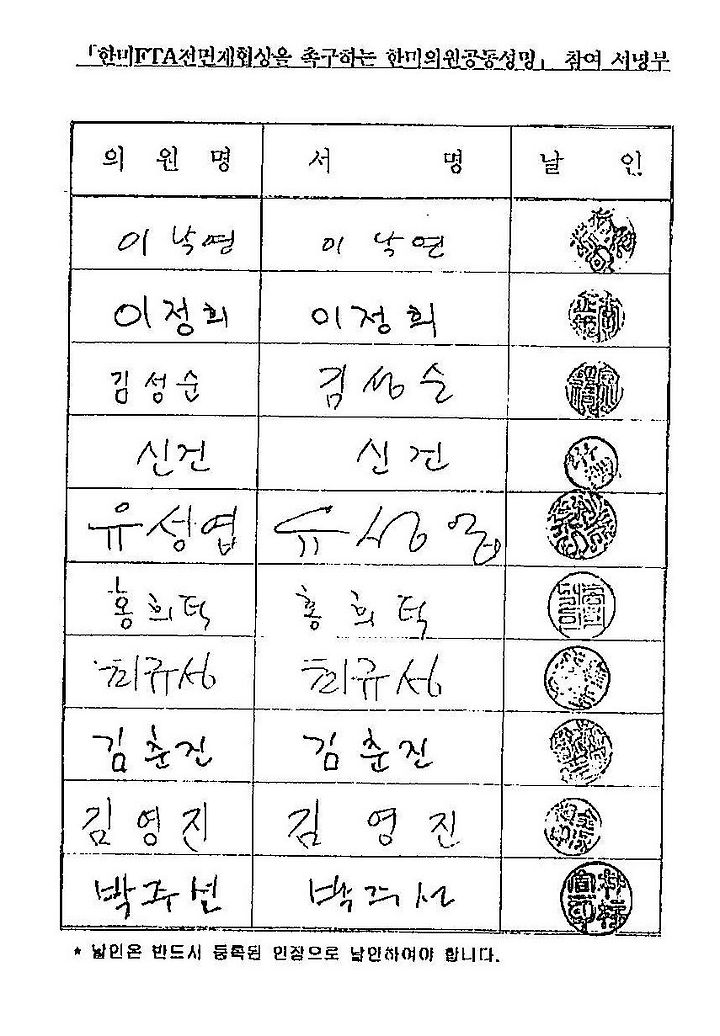 「한미FTA전면재협상을 촉구하는 한미의원공동성명」 참여 서명부
의 원 명 서 명 날 인
이낙연 이낙연
이정희 이정희
김성순 김성순
신건 신건
유성엽 유성엽
홍희덕 홍희덕
최규성 최규성
김춘진 김춘진
김영진 김영진
박주선 박주선
* 날인은 반드시 등록된 인장으로 날인하여야 합니다.